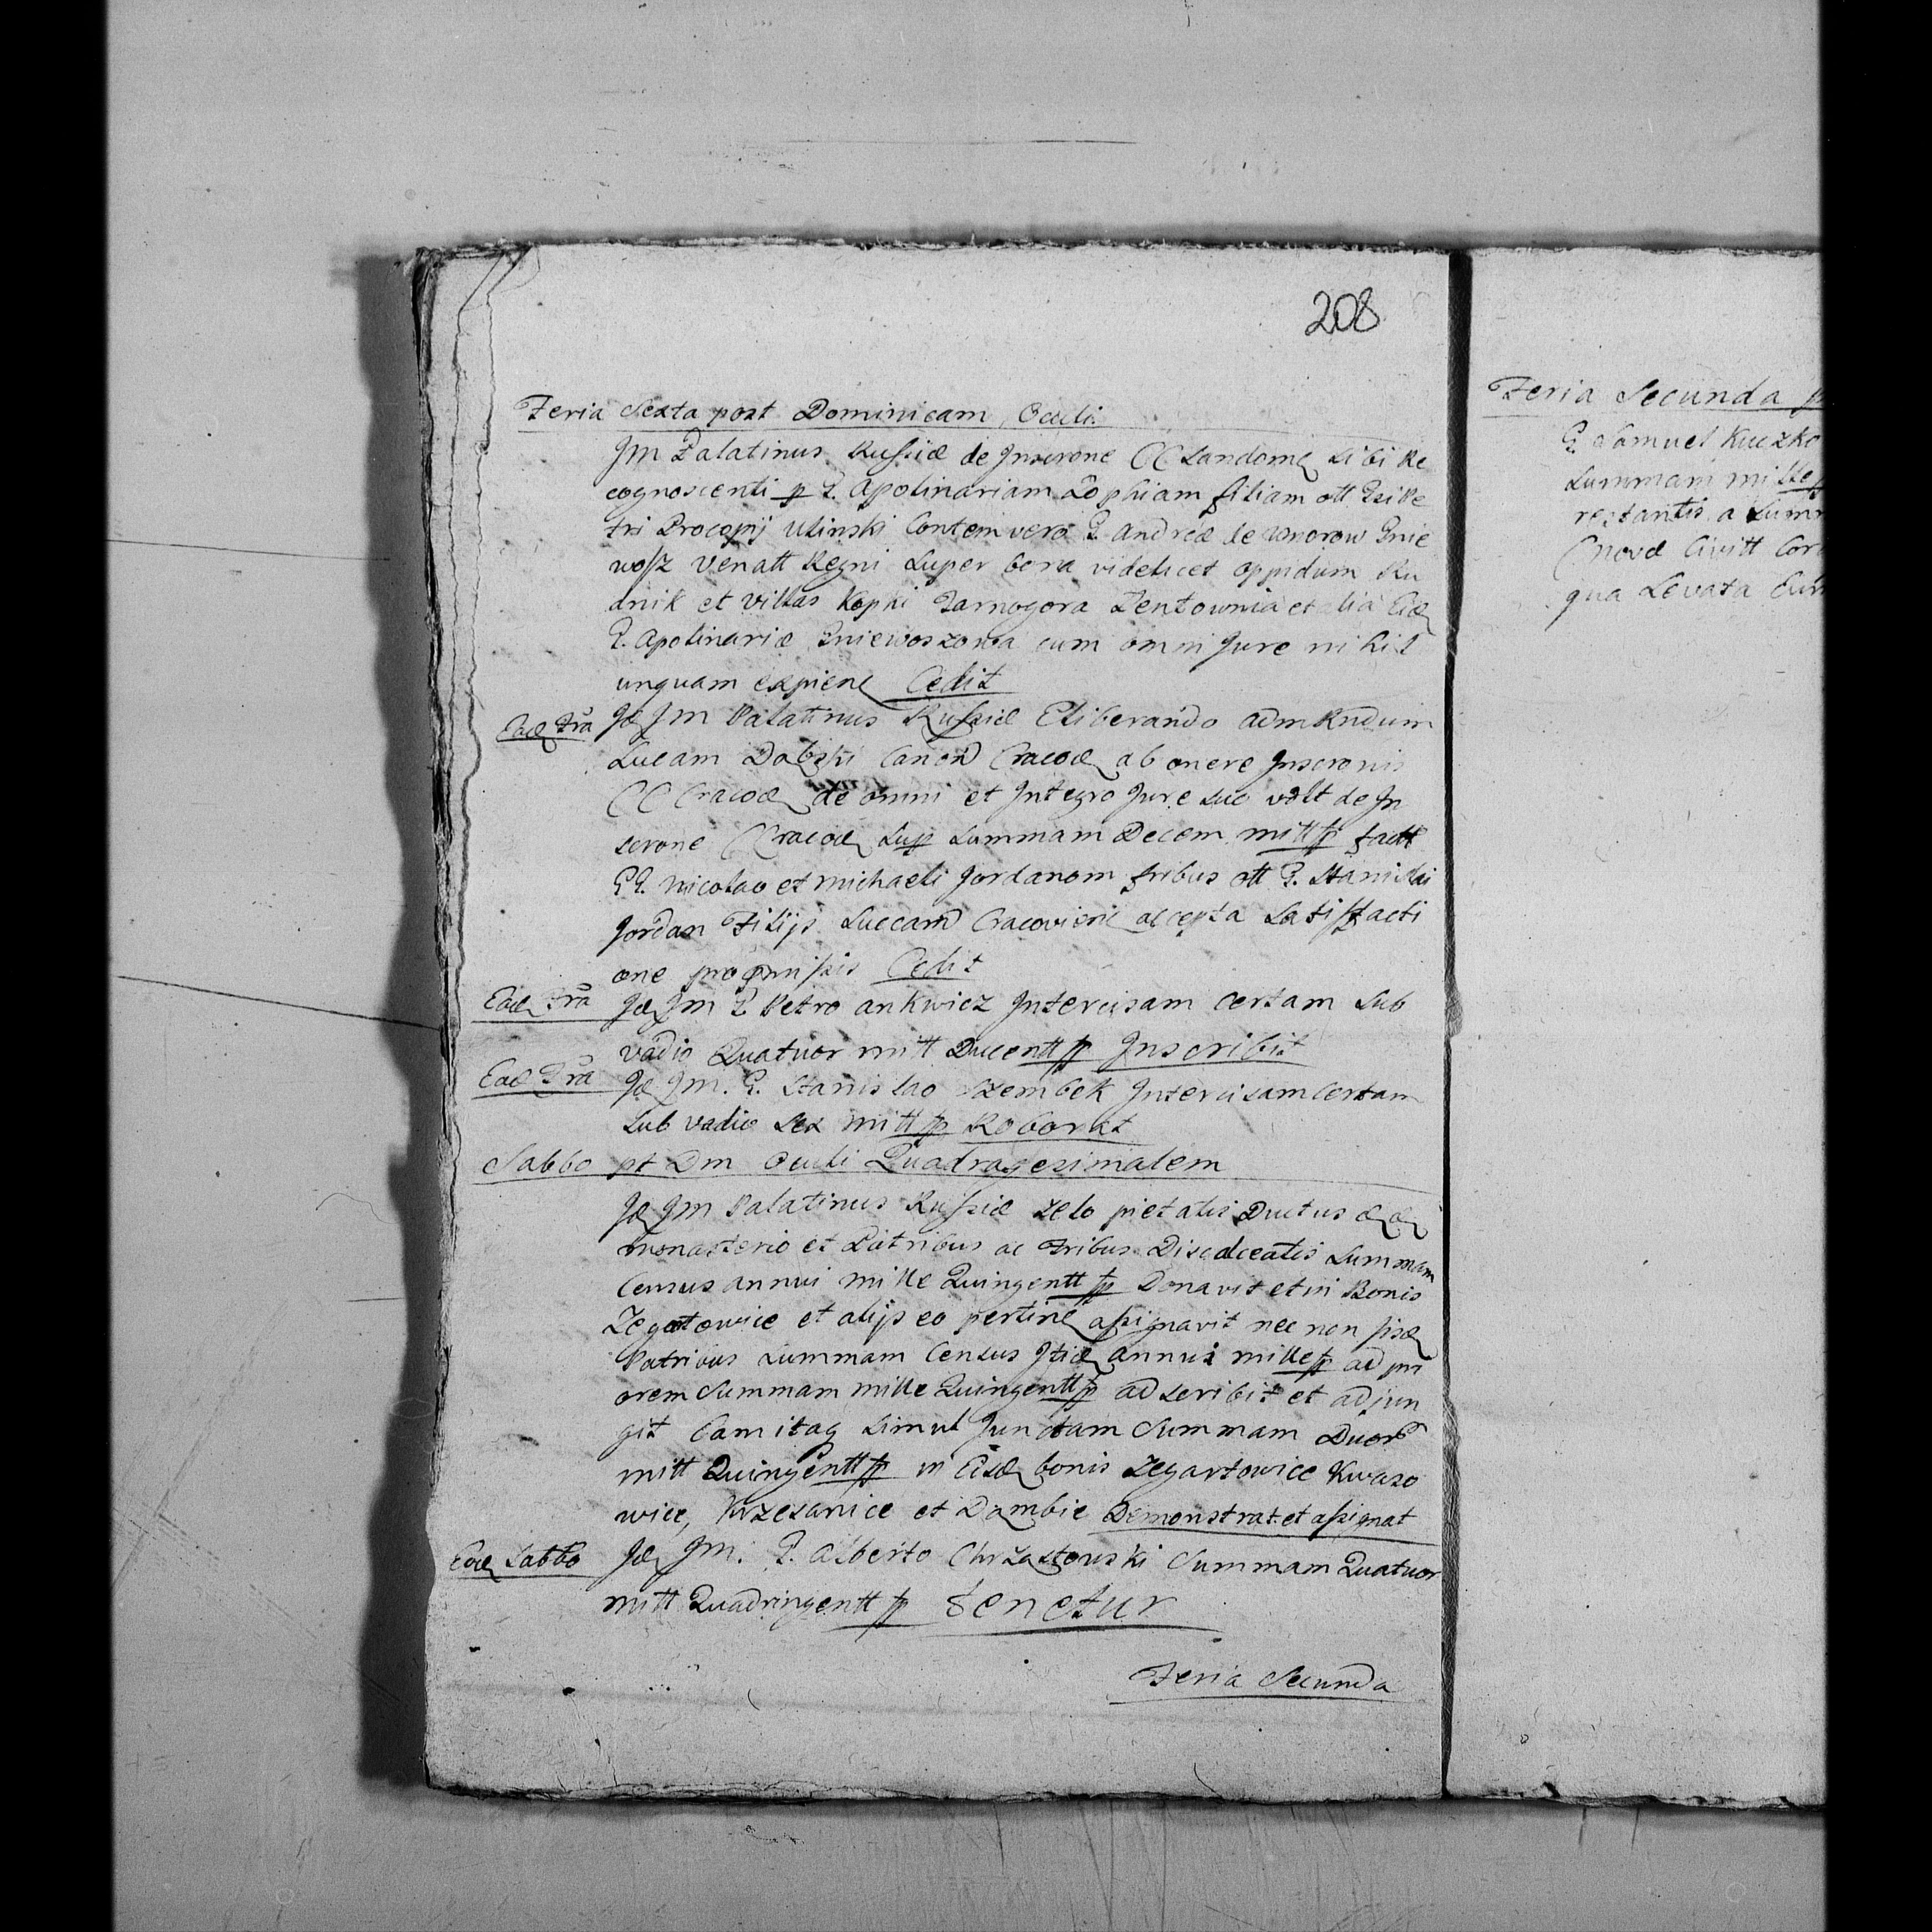 208
Feria Sexta post Dominicam Oculi
Jm Palatinus Russiæ de Inscrone CC Sandome sibi Re
cognoscenti p G. Apolinariam Zophiam filiam olt
tri Procopij Ulinski Contem vero G. Andreæ de Gnie
wosz Venatt Regni Super bona videlicet oppidum Ru
dnik et Villas Kopki Tarnogora Zentownia et alia
G. Apolinariæ Gniewoszowa cum omni Jure nihil
unquam expiene Cedit
Ead Fra Jd Jm Palatinus Russiæ Eliberando admRndum
Lucam Dabski Canon Cracoæ ab onere Inscronis
CC Cracoæ de omni et Integro Jure suo de In
scrone CCracoæ sup Summam Decem mill fp factt
GG. Nicolao et Michaeli Jordanom fribus olt G. Stanislai
Jordan Filijs Succam Cracovien accepta Satisfacti
one pro pmissis Cedit
Ead Fra Jd Jm G Petro Ankwicz Intercisam certam sub
vadio Quatuor mill Ducentt fp Inscribit
Ead Fra Jd Jm. G. Stanislao Szembek Intercisam Certam
sub vadio sex mill fp Roborat
Sabbo pt Dm Oculi Quadragesimalem
Jd Jm Palatinus Russiæ zelo pietatis Ductus
Monasterio et Patribus ac Fribus Discalceatis Summam
Census annui mille Quingentt fp Donavit et in Bonis
Zegartowice et alijs eo pertine assignavit nec non
Patribus Summam Census annui mille fp ad pri
orem Summam mille Quingentt fp adscribit et adjun
git Eam itaq simul Junctam Summam Duor
mill Quingentt fp in bonis Zegartowice Kwaso
wice, Krzesanice et Dambie Demonstrat et assignat
Ead Sabbo Jd Jm. G. Alberto Chrzastowski Summam Quatuor
mill Quadringentt fp tenetur
Feria Secunda
Feria Secunda p
G. Samuel Kuczko
Summam mille
restantis a Sum
Novæ Civitt
qua Levata